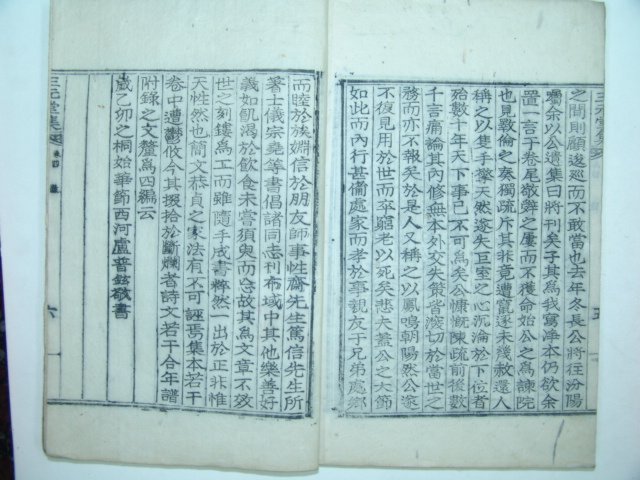 之間則顧逡巡而不敢當也去年冬長公將往汾陽
囑余以公遺集曰將刊矣子其爲我寫淨本仍欲余
置一言于卷尾敬辭之屢而不獲命始公之爲諫院
也見斁倫之奏獨疏斥其非竟遭竄逐未幾赦還人
稱之以隻手擎天然遂失巨室之心沉淪於下位者
殆數十年天下事已不可爲矣公慷慨陳疏前後數
千言痛論其內修無本外交失策皆凱切於當世之
務而亦不報矣於是人又稱之以鳳鳴朝陽然公遂
不復見用於世而卒窮老以死矣悲夫盖公之大節
如此而內行甚備處家而孝於事親友于兄弟處鄉
而睦於族婣信於朋友師事性齋先生篤信先生所
著士儀宗堯等書倡諸同志刊布域中其他樂善好
義如飢渴於飮食未嘗須臾而怠故其爲文章不效
世之刻鏤爲工而雖隨手成書粹然一出於正非惟
天性然也簡文恭貞之家法有不可誣焉集本若干
卷中遭鬱攸今其掇拾於斷爛者詩文若干合年譜
附錄之文釐爲四編云
歲乙卯之桐始華節西河盧普鉉敬書
三元堂集 卷四 六